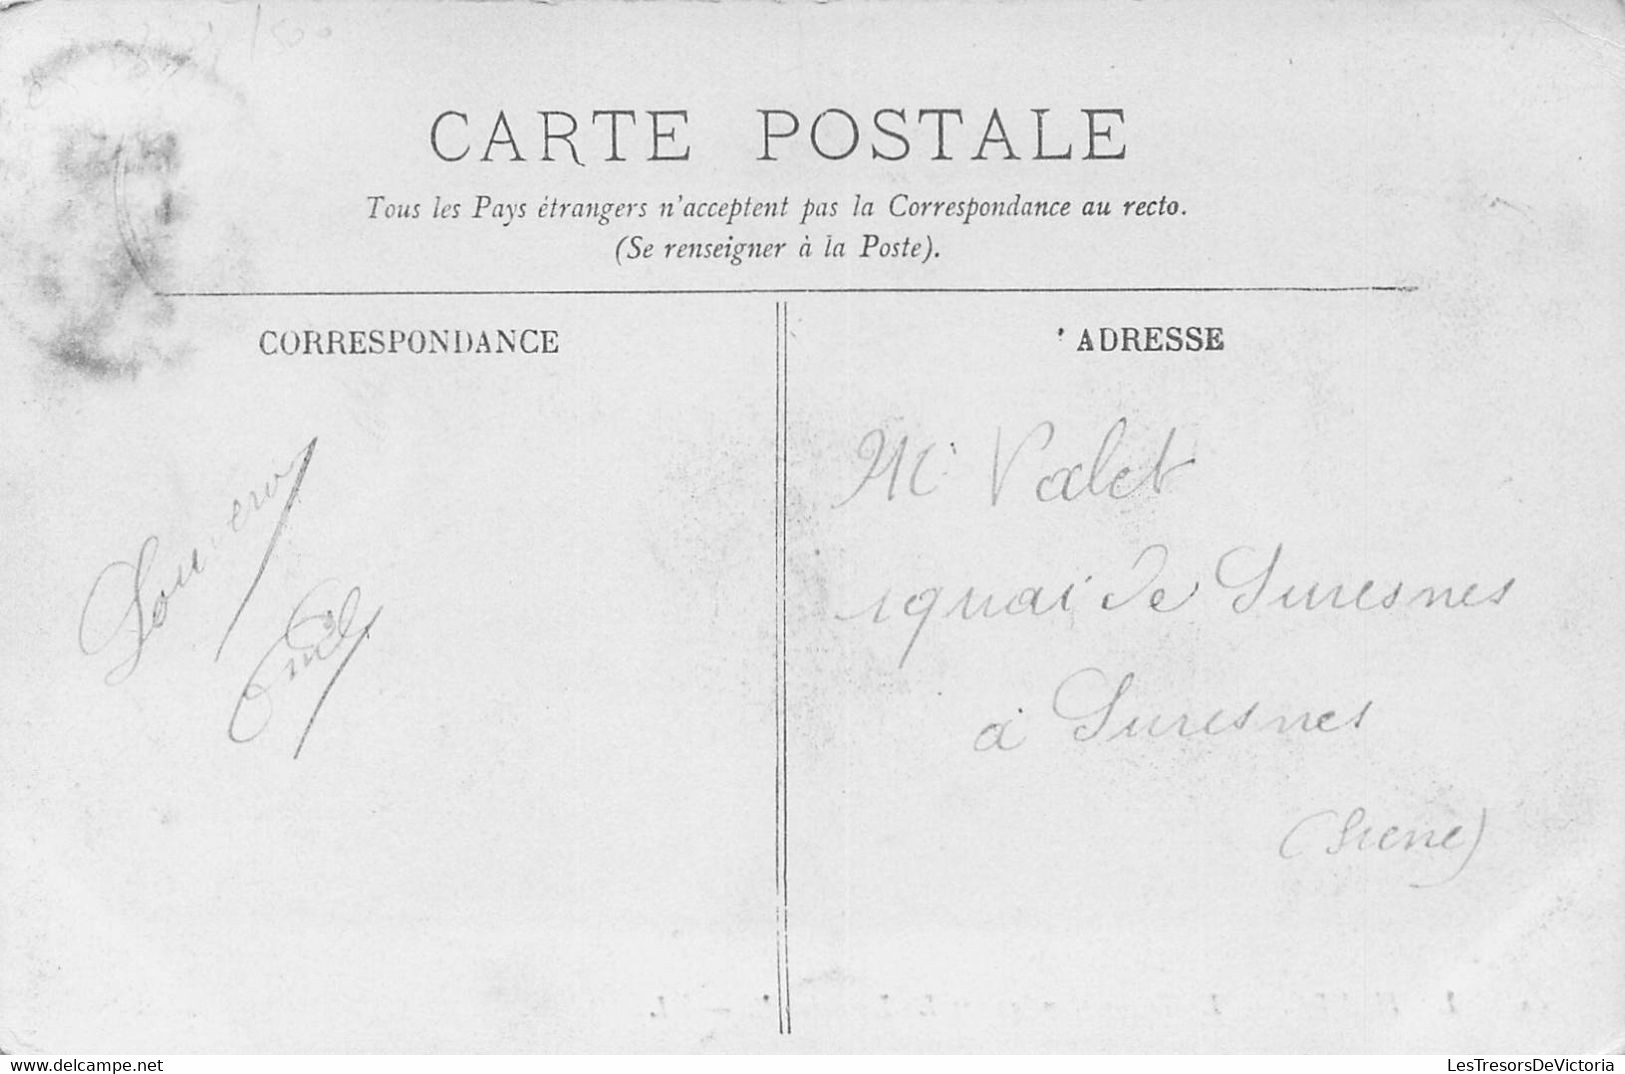 CARTE POSTALE
Tous les Pays étrangers n'acceptent pas la Correspondance au recto.
(Se renseigner à la Poste).
CORRESPONDANCE
ADRESSE
Souvenir
Emile
Mr Valet
1 quai de Suresnes
à Suresnes
(Seine)
www.delcampe.net
LesTresorsDeVictoria